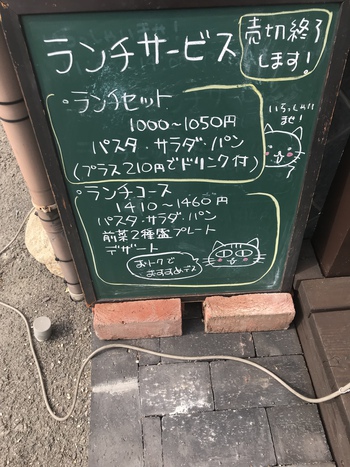 ランチサービス
売切終了
します!
・ランチセット
1000〜1050円
パスタ・サラダ・パン
(プラス210円でドリンク付)
いらっしゃい
ませ!
・ランチコース
1410〜1460円
パスタ・サラダ・パン
前菜2種盛プレート
デザート
おトクで
おすすめデス